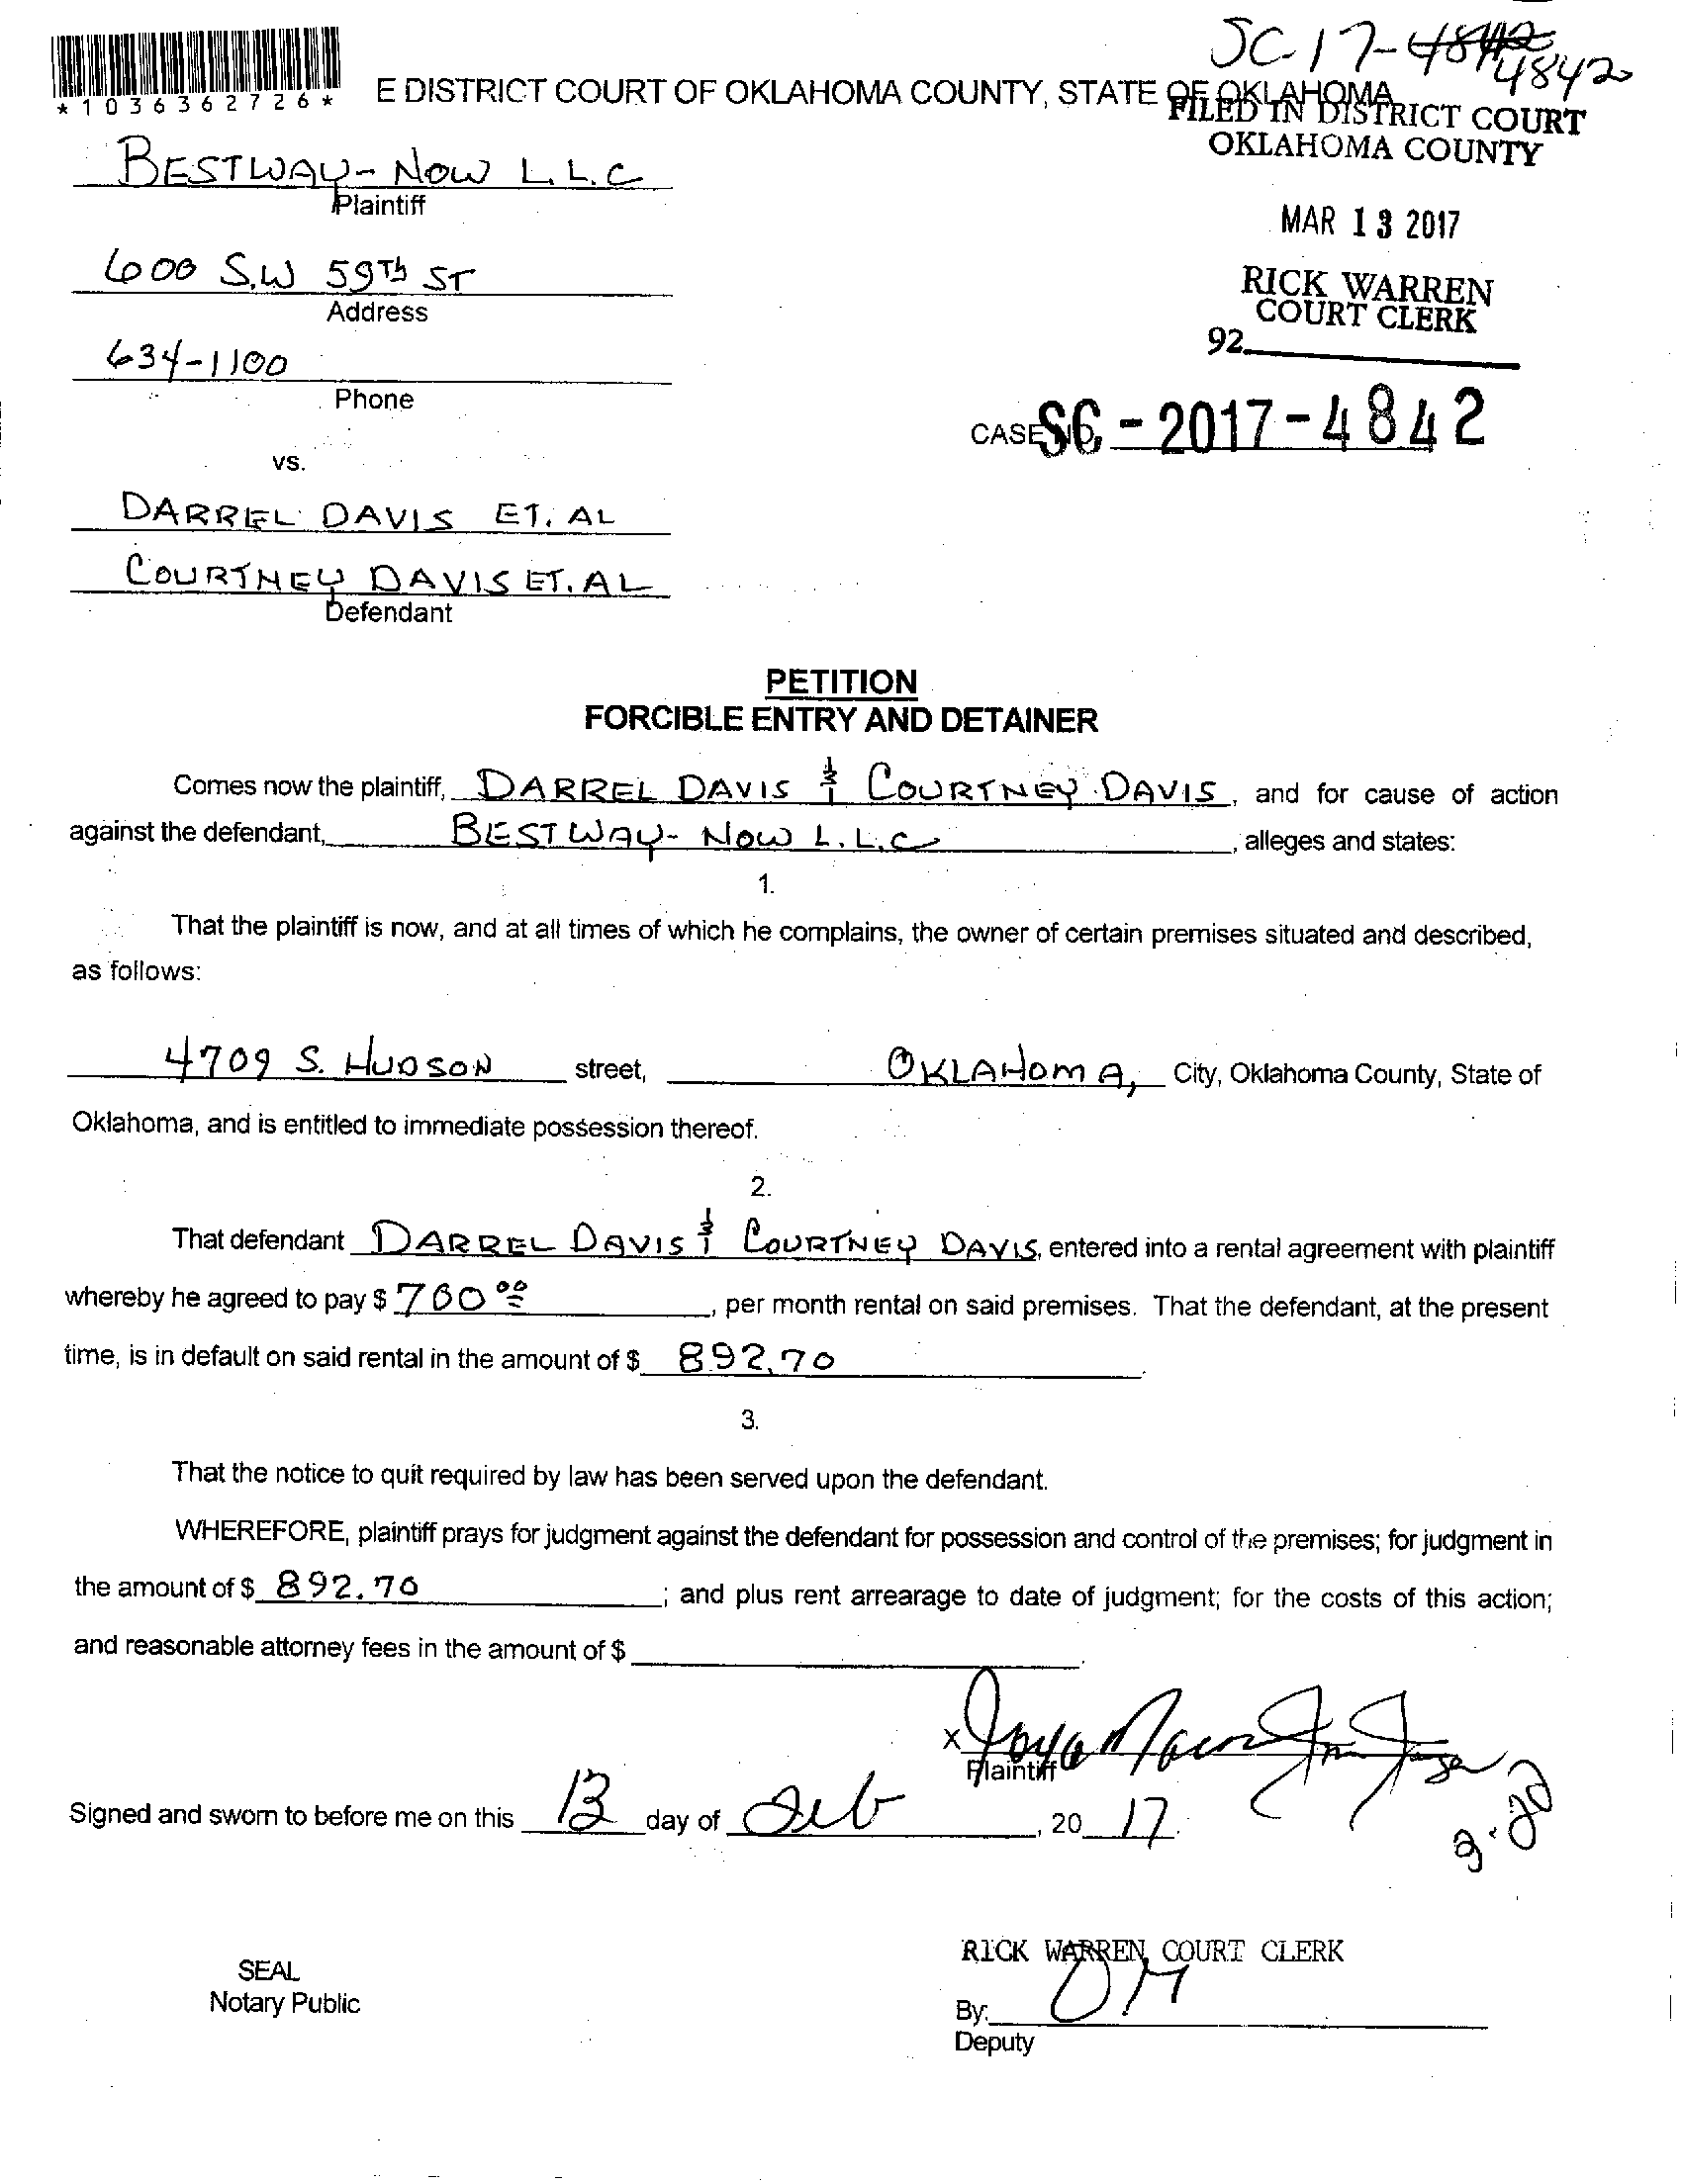 SC-17-4842
4842
*1036362726*
E DISTRICT COURT OF OKLAHOMA COUNTY, STATE OF OKLAHOMA
FILED IN DISTRICT COURT
OKLAHOMA COUNTY
BESTWAY-NOW L.L.C
Plaintiff
MAR 13 2017
600 S.W 59Th ST
Address
RICK WARREN
COURT CLERK
92
634-1100
Phone
CASE NO. SC-2017-4842
vs.
DARREL DAVIS ET. AL
COURTNEY DAVIS ET. AL
Defendant
PETITION
FORCIBLE ENTRY AND DETAINER
Comes now the plaintiff, DARREL DAVIS & COURTNEY DAVIS, and for cause of action
against the defendant, BESTWAY-NOW L.L.C, alleges and states:
1.
That the plaintiff is now, and at all times of which he complains, the owner of certain premises situated and described,
as follows:
4709 S. HUDSON street, OKLAHOMA, City, Oklahoma County, State of
Oklahoma, and is entitled to immediate possession thereof.
2.
That defendant DARREL DAVIS & COURTNEY DAVIS, entered into a rental agreement with plaintiff
whereby he agreed to pay $ 700.00, per month rental on said premises. That the defendant, at the present
time, is in default on said rental in the amount of $ 892.70.
3.
That the notice to quit required by law has been served upon the defendant.
WHEREFORE, plaintiff prays for judgment against the defendant for possession and control of the premises; for judgment in
the amount of $ 892.70; and plus rent arrearage to date of judgment; for the costs of this action;
and reasonable attorney fees in the amount of $.
X
Plaintiff
Signed and sworn to before me on this 13 day of Feb, 20 17.
RICK WARREN, COURT CLERK
SEAL
Notary Public
By:
Deputy